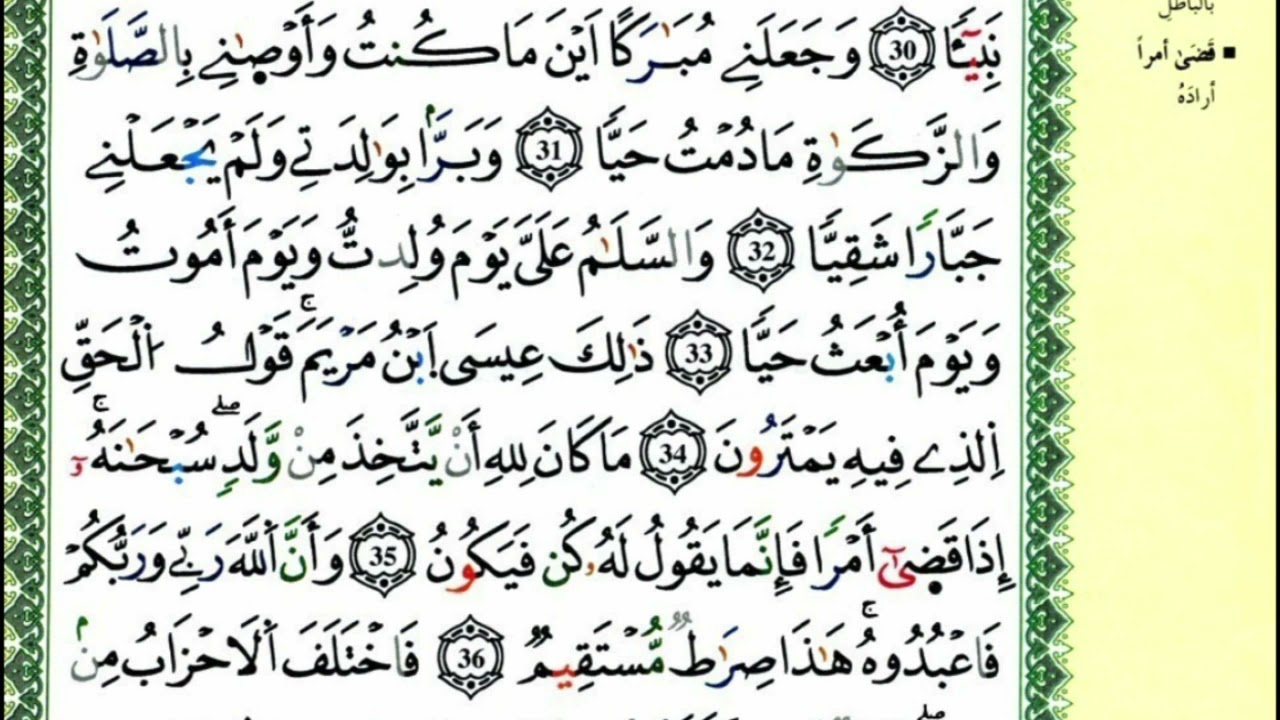 نَبِيٓـًٔا 30 وَجَعَلَنِے مُبَٰرَكًا اَيْنَ مَا كُنتُ وَأَوْصٰٜنِے بِالصَّلَوٰةِ
وَالزَّكَوٰةِ مَا دُمْتُ حَيّٗا 31 وَبَرَّۢا بِوَٰلِدَتِے وَلَمْ يَجْعَلْنِے
جَبَّارٗا شَقِيّٗا 32 وَالسَّلَٰمُ عَلَيَّ يَوْمَ وُلِدتُّ وَيَوْمَ أَمُوتُ
وَيَوْمَ أُبْعَثُ حَيّٗا 33 ذَٰلِكَ عِيسَى اَبْنُ مَرْيَمَۚ قَوْلُ اُ۬لْحَقِّ
اِ۬لذِے فِيهِ يَمْتَرُونَ 34 مَا كَانَ لِلهِ أَنْ يَّتَّخِذَ مِنْ وَّلَدٖۖ سُبْحَٰنَهُۥٓۚ
إِذَا قَضٜىٰٓ أَمْرٗا فَإِنَّمَا يَقُولُ لَهُۥ كُن فَيَكُونُ 35 وَأَنَّ اَ۬للَّهَ رَبِّے وَرَبُّكُمْ
فَاعْبُدُوهُۚ هَٰذَا صِرَٰطٞ مُّسْتَقِيمٞ 36 فَاخْتَلَفَ اَ۬لَاحْزَابُ مِنۢ
بالبَاطِلِ
■ قَضَىٰ أمراً
أرادَهُ